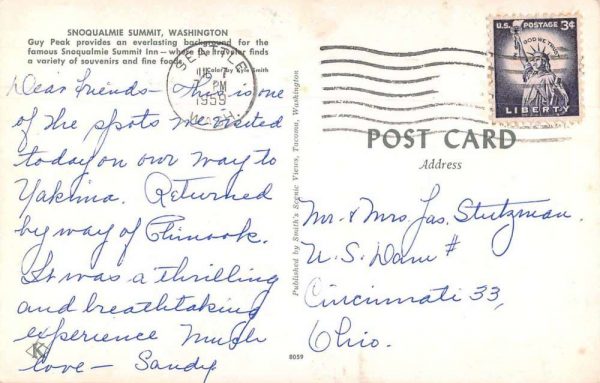 SNOQUALMIE SUMMIT, WASHINGTON
Guy Peak provides an everlasting background for the
famous Snoqualmie Summit Inn — where the traveler finds
a variety of souvenirs and fine foods.
Color by Smith
Dear Friends — This is one
of the spots we visited
today on our way to
Yakima. Returned
by way of Chinook.
It was a thrilling
and breathtaking
experience Much
love — Sandy
K
SEATTLE
PM
1959
WASH.
Published by Smith's Scenic Views, Tacoma, Washington
8059
U.S. POSTAGE 3¢
IN GOD WE TRUST
LIBERTY
POST CARD
Address
Mr. & Mrs. Jas. Stutzman.
U.S. Dam #
Cincinnati 33,
Ohio.